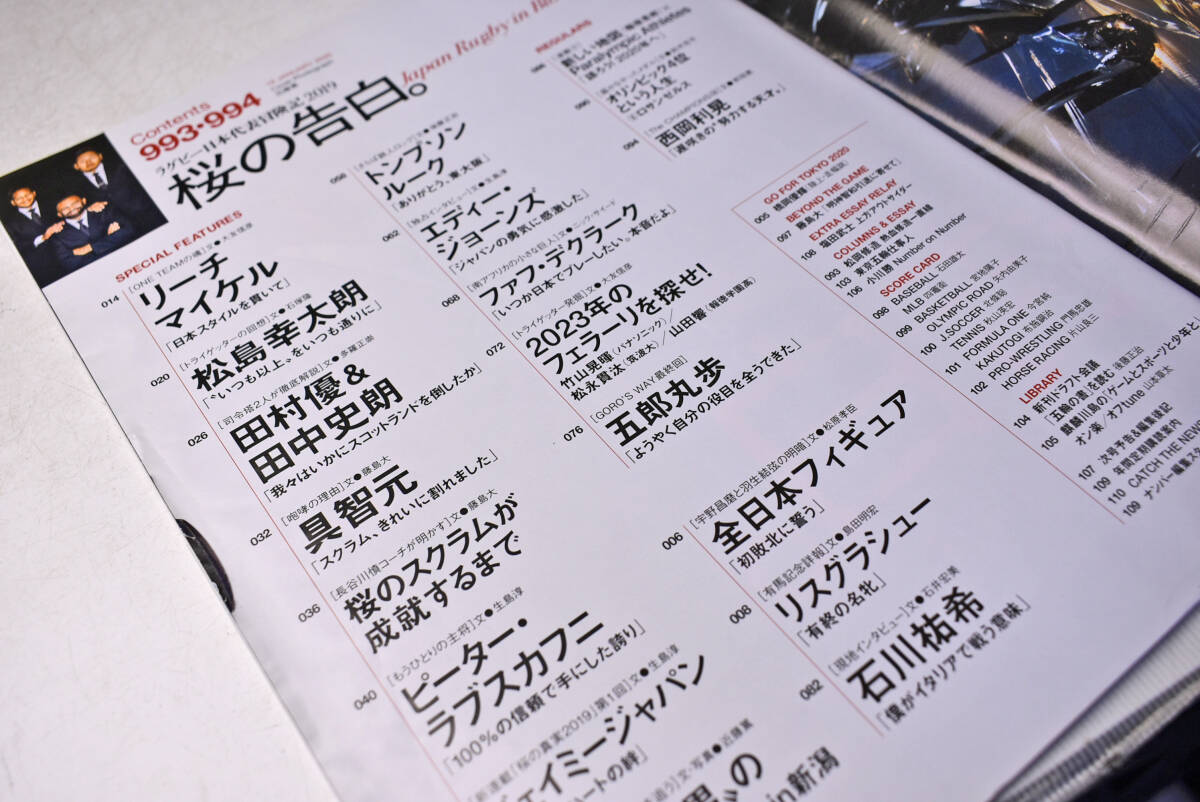 Contents
993・994
ラグビー日本代表冒険記2019
桜の告白。
Japan Rugby in
SPECIAL FEATURES
014
[ONE TEAMの魂]文●大友信彦
リーチ
マイケル
「日本スタイルを貫いて」
020
[トライゲッターの回想]文●石塚隆
松島幸太朗
「“いつも以上”をいつも通りに」
026
[司令塔2人が徹底解説]文●多羅正崇
田村優&
田中史朗
「我々はいかにスコットランドを倒したか」
032
[咆哮の理由]文●藤島大
具智元
「スクラム、きれいに割れました」
036
[長谷川慎コーチが明かす]文●藤島大
桜のスクラムが
成就するまで
040
[もうひとりの主将]文●生島淳
ピーター・
ラブスカフニ
「100%の信頼で手にした誇り」
[新連載「桜の真実2019」第1回]文●生島淳
イミージャパン
ートの絆」
058
トンプソン
ルーク
「ありがとう、東大阪」
062
[独占インタビュー]文●生島淳
エディー・
ジョーンズ
「ジャパンの勇気に感激した」
068
[南アフリカの小さな巨人]文●ニック・サイード
ファフ・デクラーク
「いつか日本でプレーしたい。本音だよ」
072
[トライゲッター発掘]文●大友信彦
2023年の
フェラーリを探せ!
竹山晃暉(パナソニック)/
松永貫汰(筑波大)/山田響(報徳学園高)
076
[GORO'S WAY最終回]
五郎丸歩
「ようやく自分の役目を全うできた」
006
[宇野昌磨と羽生結弦の明暗]文●松原孝臣
全日本フィギュア
「初敗北に誓う」
008
[有馬記念詳報]文●島田明宏
リスグラシュー
「有終の名牝」
082
[現地インタビュー]文●石井宏美
石川祐希
「僕がイタリアで戦う意味」
文・写真●近藤篤
の
in新潟
REGULARS
新しい地図
Paralympic Athletes
語ろう「2020年へ」
090
オリンピック4位
という人生
094
西岡利晃
「遅咲きの“努力する天才”」
GO FOR TOKYO 2020
005
BEYOND THE GAME
097
藤島大
EXTRA ESSAY RELAY
108
塩田武士 上方アウトサイダー
COLUMNS & ESSAY
093 松岡修造 熱血修造一直線
103 東京五輪仕事人
106 小川勝 Number on Number
SCORE CARD
098
BASEBALL 石田雄太
MLB 四竈衛
099
BASKETBALL 宮地陽子
OLYMPIC ROAD 矢内由美子
100
J.SOCCER 北條聡
TENNIS 秋山英宏
101
FORMULA ONE 今宮純
KAKUTOGI 布施鋼治
102
PRO-WRESTLING 門馬忠雄
HORSE RACING 片山良三
LIBRARY
104 新刊ドラフト会議
「五輪の書」を読む 後藤正治
105
オン楽/オフtune 山本草太
107 次号予告&編集後記
109 年間定期購読案内
110 CATCH THE NEW
109